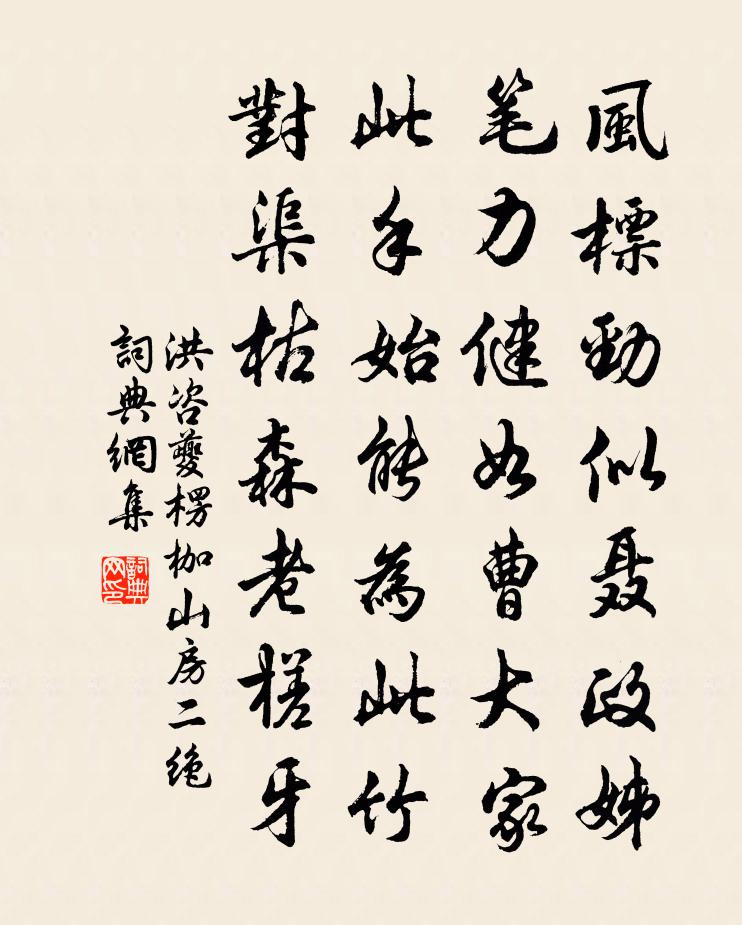 風標勁似聶政姊
笔力健如曹大家
此手始能為此竹
對渠枯森老槎牙
洪咨夔楞枷山房二绝
詞典網集
詞典
网印